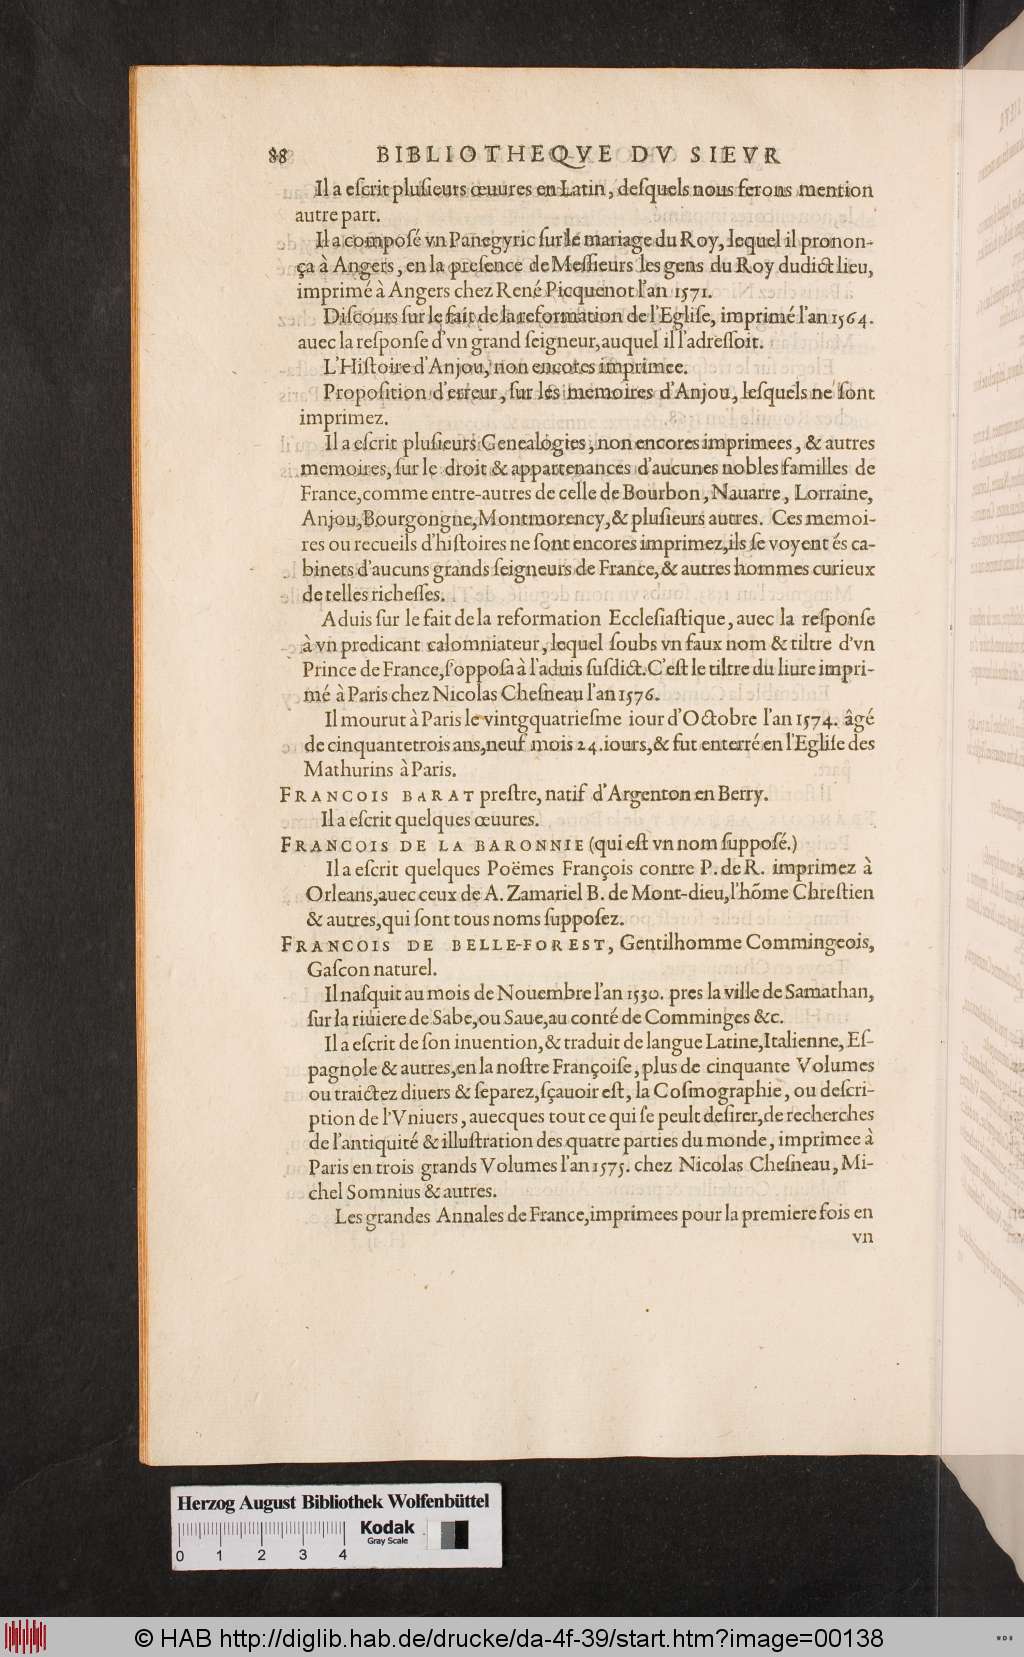 88 BIBLIOTHEQVE DV SIEVR
Il a eſcrit pluſieurs œuures en Latin, deſquels nous ferons mention
autre part.
Il a compoſé vn Panegyric ſur le mariage du Roy, lequel il pronon-
ça à Angers, en la preſence de Meſſieurs les gens du Roy dudict lieu,
imprimé à Angers chez René Picquenot l'an 1571.
Diſcours ſur le fait de la reformation de l'Egliſe, imprimé l'an 1564.
auec la reſponſe d'vn grand ſeigneur, auquel il l'adreſſoit.
L'Hiſtoire d'Anjou, non encores imprimee.
Propoſition d'erreur, ſur les memoires d'Anjou, leſquels ne ſont
imprimez.
Il a eſcrit pluſieurs Genealogies, non encores imprimees, & autres
memoires, ſur le droit & appartenances d'aucunes nobles familles de
France, comme entre-autres de celle de Bourbon, Nauarre, Lorraine,
Anjou, Bourgongne, Montmorency, & pluſieurs autres. Ces memoi-
res ou recueils d'hiſtoires ne ſont encores imprimez, ils ſe voyent és ca-
binets d'aucuns grands ſeigneurs de France, & autres hommes curieux
de telles richeſſes.
Aduis ſur le fait de la reformation Eccleſiaſtique, auec la reſponſe
à vn predicant calomniateur, lequel ſoubs vn faux nom & tiltre d'vn
Prince de France, ſ'oppoſa à l'aduis ſuſdict. C'eſt le tiltre du liure impri-
mé à Paris chez Nicolas Cheſneau l'an 1576.
Il mourut à Paris le vintgquatrieſme iour d'Octobre l'an 1574. âgé
de cinquantetrois ans, neuf mois 24. iours, & fut enterré en l'Egliſe des
Mathurins à Paris.
FRANCOIS BARAT preſtre, natif d'Argenton en Berry.
Il a eſcrit quelques œuures.
FRANCOIS DE LA BARONNIE (qui eſt vn nom ſuppoſé.)
Il a eſcrit quelques Poëmes François contre P. de R. imprimez à
Orleans, auec ceux de A. Zamariel B. de Mont-dieu, l'hõme Chreſtien
& autres, qui ſont tous noms ſuppoſez.
FRANCOIS DE BELLE-FOREST, Gentilhomme Commingeois,
Gaſcon naturel.
Il naſquit au mois de Nouembre l'an 1530. pres la ville de Samathan,
ſur la riuiere de Sabe, ou Saue, au conté de Comminges &c.
Il a eſcrit de ſon inuention, & traduit de langue Latine, Italienne, Eſ-
pagnole & autres, en la noſtre Françoiſe, plus de cinquante Volumes
ou traictez diuers & ſeparez, ſçauoir eſt, la Coſmographie, ou deſcri-
ption de l'Vniuers, auecques tout ce qui ſe peult deſirer, de recherches
de l'antiquité & illuſtration des quatre parties du monde, imprimee à
Paris en trois grands Volumes l'an 1575. chez Nicolas Cheſneau, Mi-
chel Somnius & autres.
Les grandes Annales de France, imprimees pour la premiere fois en
vn
Herzog August Bibliothek Wolfenbüttel
Kodak
Gray Scale
0 1 2 3 4
© HAB http://diglib.hab.de/drucke/da-4f-39/start.htm?image=00138